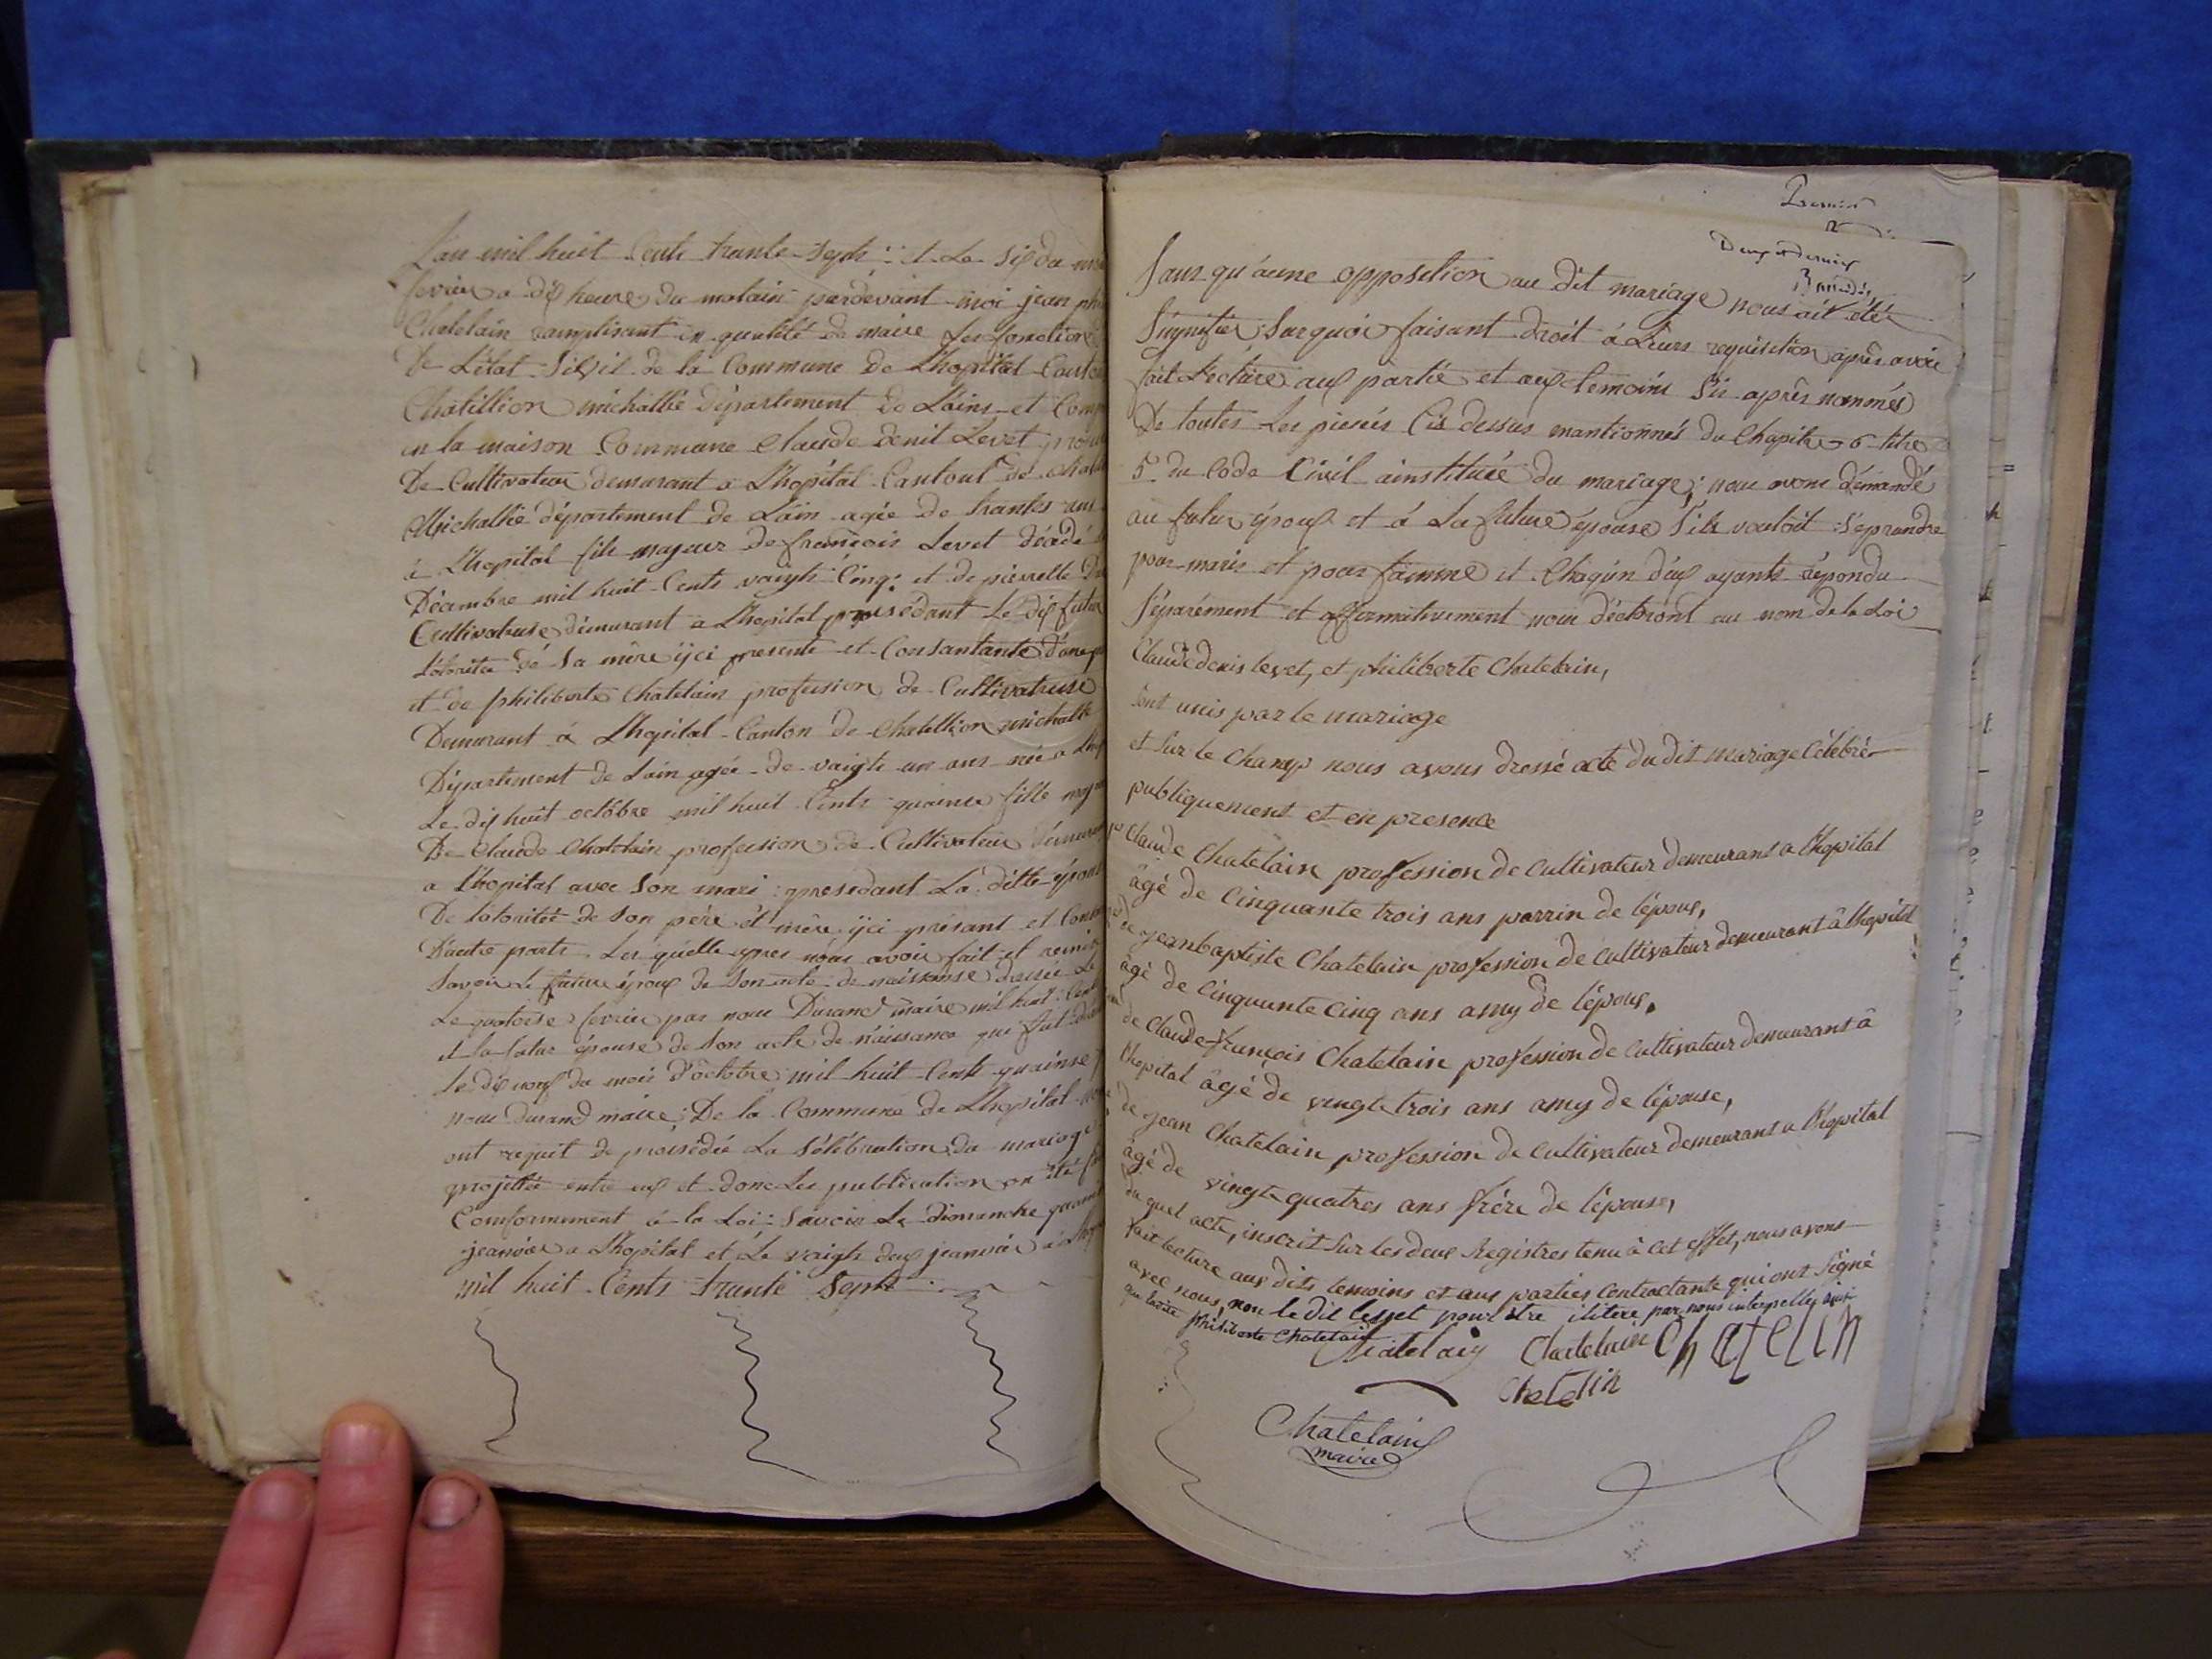 L'an mil huit Cents trante Sept : : le Six du mois
fevrier a dix heure du matain pardevant moi jean
Chatelain ramplisant en qualité de maire Les fonctions
De L'état Sivil de la Commune de Lhopital Canton
Chatillion michallie Département De L'Ains et Comp
en la maison Commune Claude Denit Levet
De Cultivateur demurant a Lhopital Cantont de
Michallie département de L'ain agée de trantes ans
à Lhopital fils majeur de francois Levet décédé
Décembre mil huit Cents vaigts Cinq : et de pierrette
Cultivatuse demurant a Lhopital prosédant Le dix futur
L'otoritee dé Sa mère ÿci presente et Consantante d'une
et de philiberte Chatelain profession de Cultivatuse
Demurant à Lhopital Canton de Chatillion michalle
Département de Lain agée de vaigts un ans née a
Le dix huit octobre mil huit Cents quainse fille
De Claude Chatelain profession de Cultivateur
a Lhopital avec Son mari : prosedant La ditte épouse
De lotoritée de Son père et mère ÿci présant et
D'autre parts Les quelle apres nous avoir fait et
Savoir Le future époux de Son acte de naissanse
Le quatorse fevrier par nous Durand maire mil huit Cents
et la futur épouse de Son acte de naissance qui fut
le dix nouf du mois d'octobre mil huit Cents quainse
nous Durand maire De la Commune de Lhopital
ont requit de prosédée La Sélébration du mariage
projettée entre eux et donc Les publication on été
Comformement à la Loi : Savoir Le dimanche
jeanvier a Lhopital et Le vaigts deux jeanvier à
mil huit Cents trante Septs
Premier
2
Deux et dernier
Sans qu'aune opposition au dit mariage nous ait étée
Signifiée Surquoi faisant droit á Leurs requisition après avoir
fait Lecture aux partie et aux temoins Sis après nommés
De toutes Les piesées Cis dessus mantionnés du Chapitre 6 titre
5 du Code Civil ainstitueé du mariage ; nous avons démandé
au futur époux et á La future épouse S'ils voutoit S'éprandre
pour maris et pour famme et Chaqun d'eux ayants répondu
Séparément et affirmativement nous déclaront au nom de la Loi
Claude denis levet, et philiberte Chatelain,
Sont unis par le mariage
et Sur le Champ nous avons dressé acte du dit mariage Célébré
publiquement et en presence
1º Claude Chatelain profession de cultivateur demeurans a Lhopital
âgé de Cinquante trois ans parrin de lépous,
de jeanbaptiste Chatelain profession de Cultivateur demeurant à lhopital
âgé de Cinquante Cinq ans amy de lépous,
de Claude-françois Chatelain profession de Cultivateur demeurant à
Lhopital âgé de vingt trois ans amy de lépouse,
de jean Chatelain profession de Cultivateur demeurans a Lhopital
âgé de vingt quatres ans frére de lépouse,
du quel acte, inscrit Sur les deux Registres tenu à cet effet, nous avons
fait lecture aux dits temoins et aux parties Contractante qui ont Signé
avec nous, non le dit levet pour être ilitere par nous interpelley
philiberte Chatelain
Chatelain Chatelain Chatelin
Chatelin
Chatelain
maire